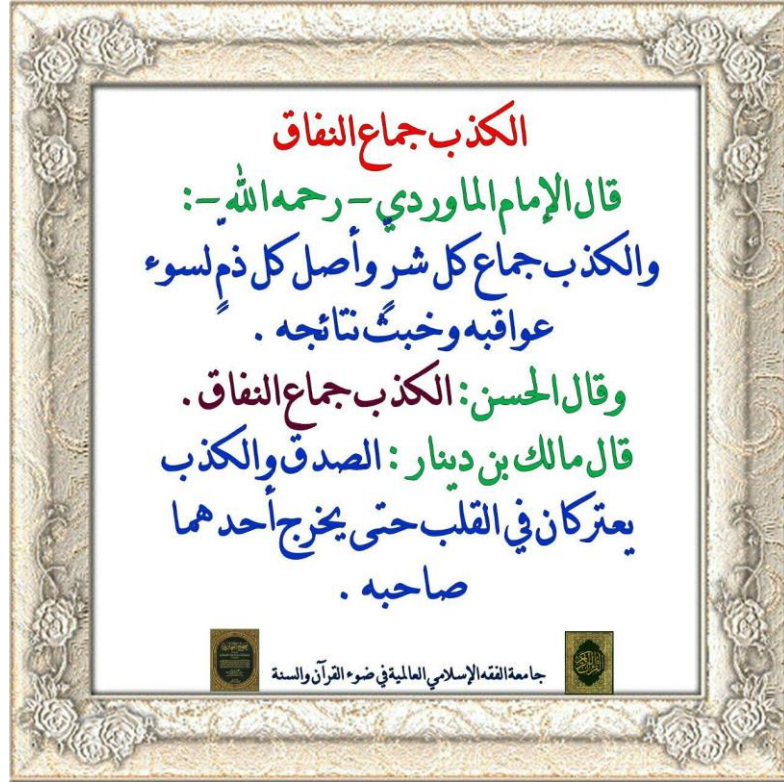 الكذب جماع النفاق
قال الإمام الماوردي - رحمه الله -:
والكذب جماع كل شرٍّ وأصل كل ذمٍّ لسوء
عواقبه وخبث نتائجه .
وقال الحسن: الكذب جماع النفاق .
قال مالك بن دينار : الصدق والكذب
يعتركان في القلب حتى يخرج أحدهما
صاحبه .
جامعة الفقه الإسلامي العالمية في ضوء القرآن والسنة